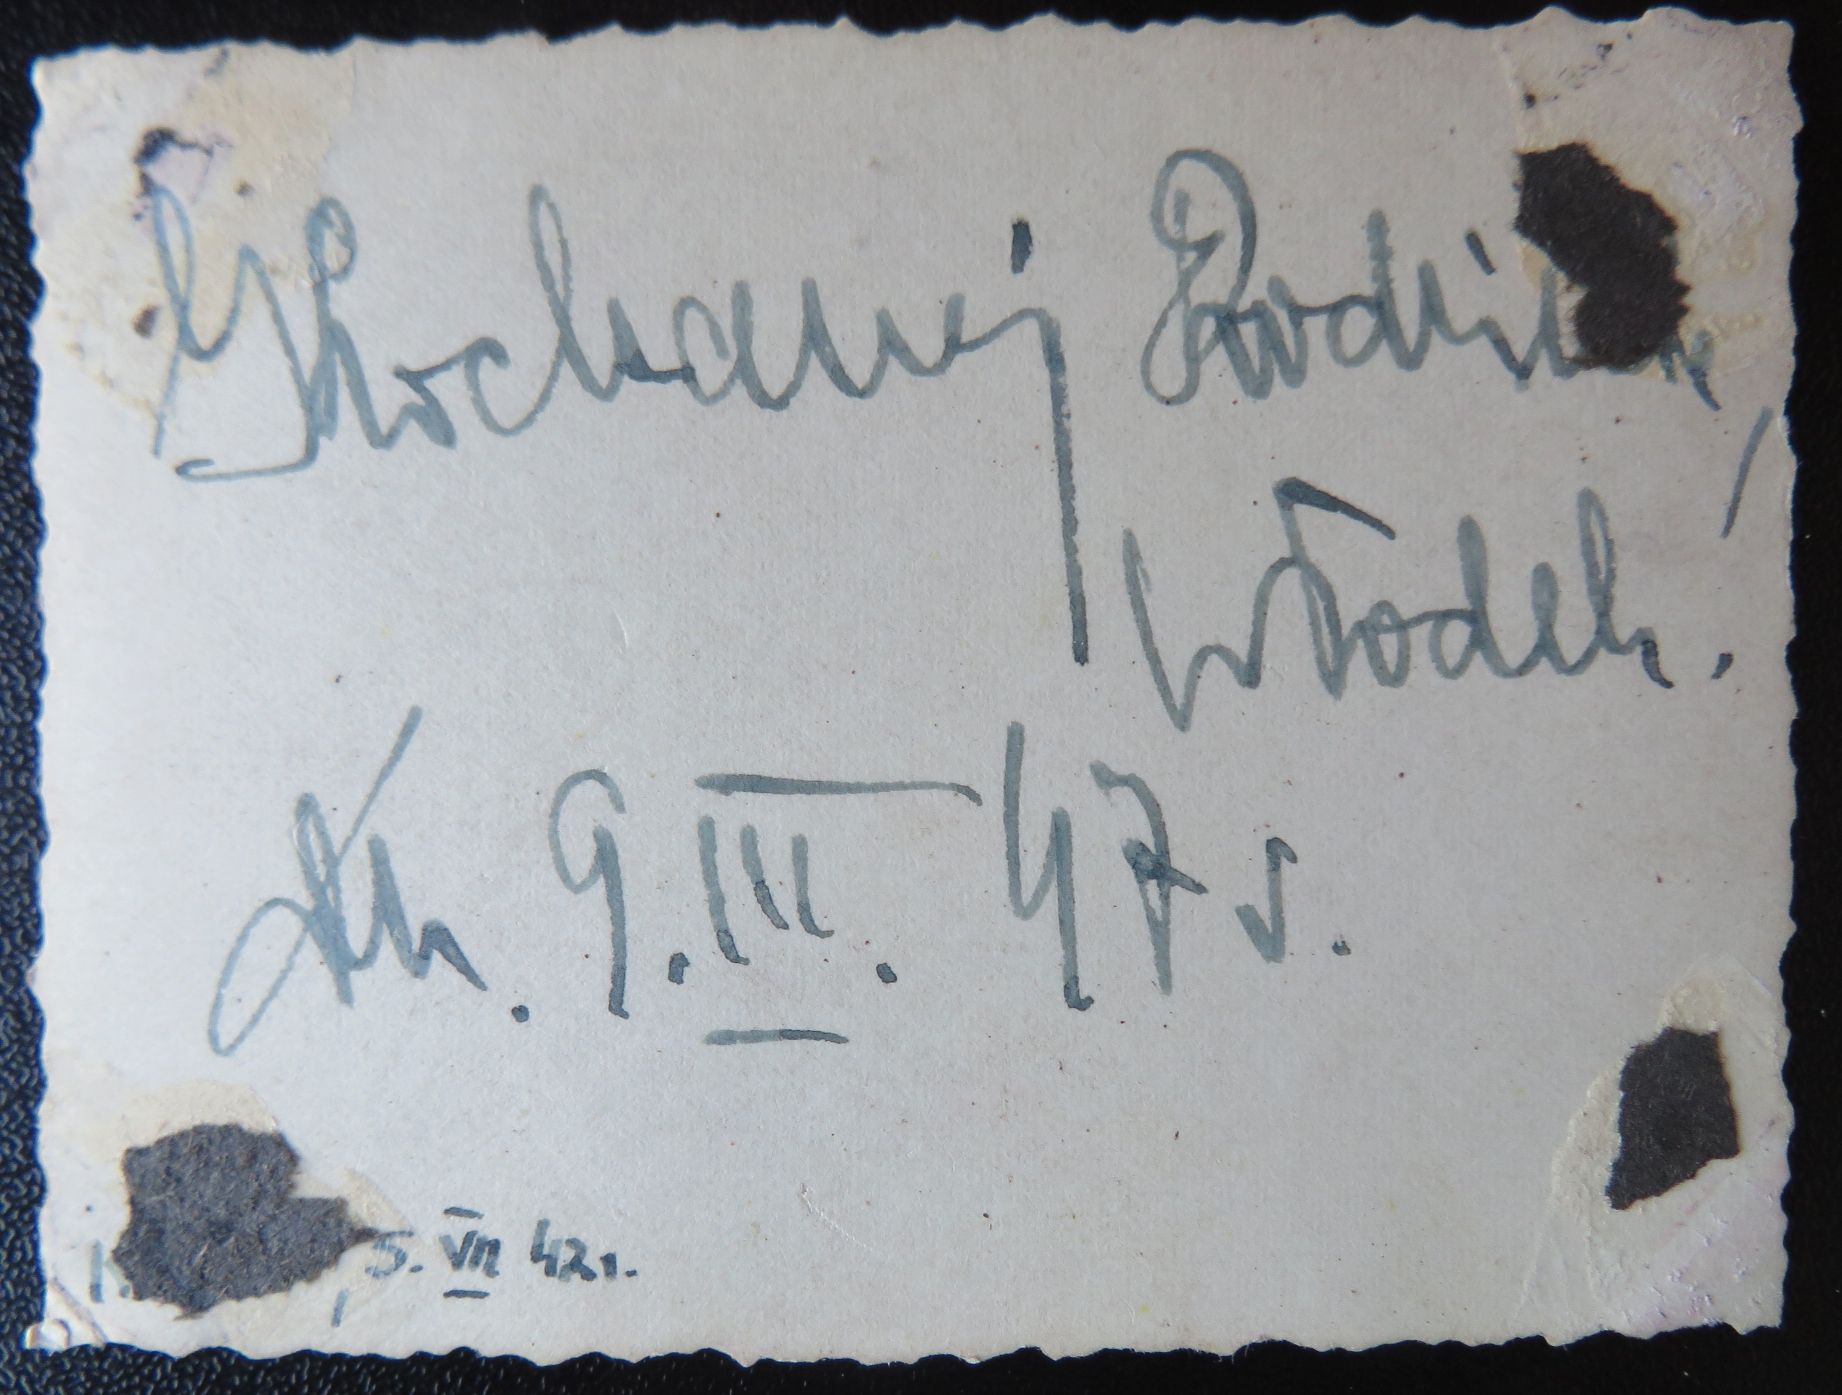 Kochanej Rodzince
Włodek!
dn. 9. III. 47 r.
5. VII 42 r.